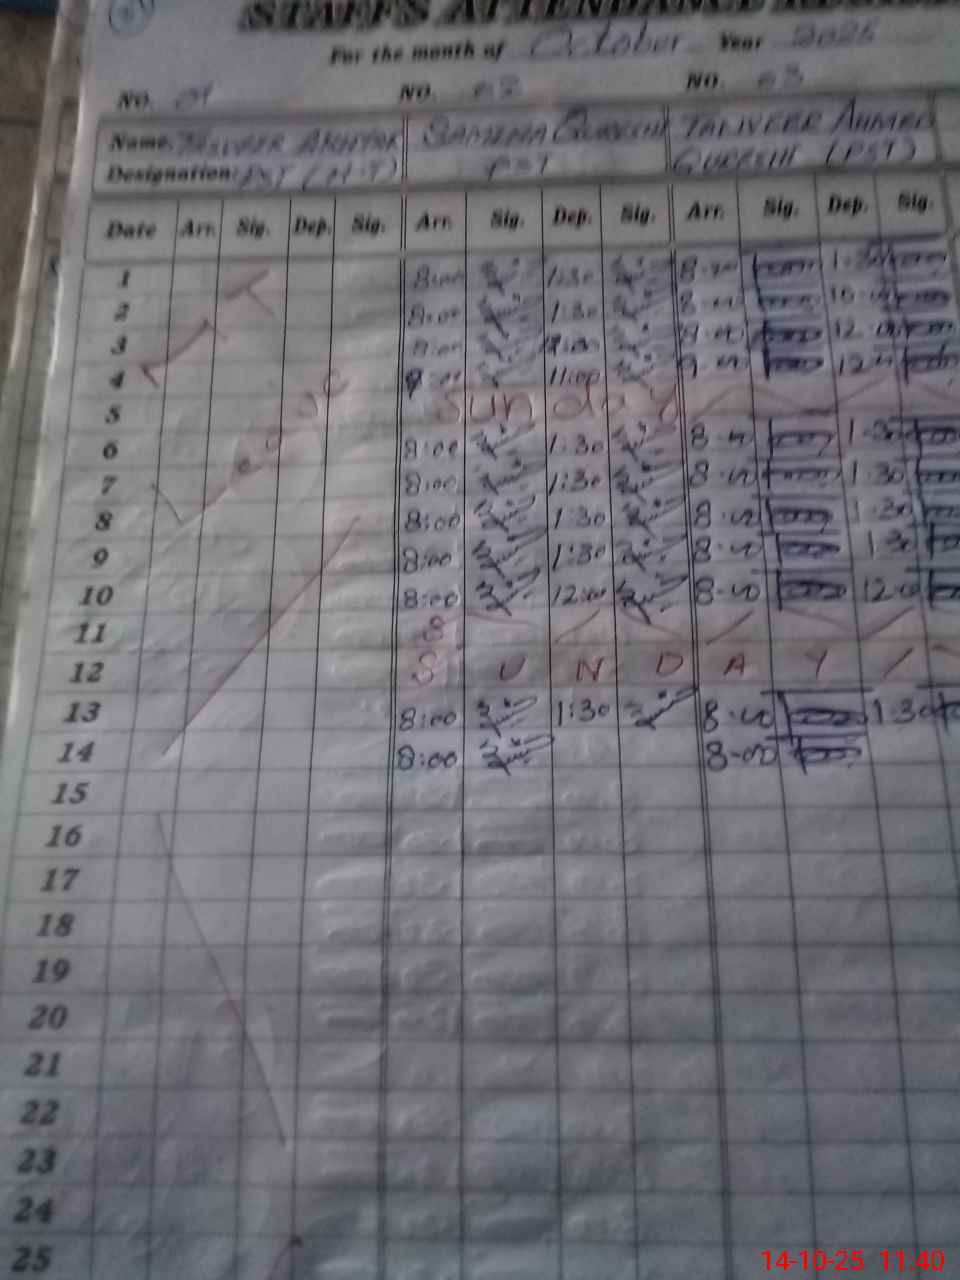 STAFF'S ATTENDANCE
For the month of October Year 2025
NO. 01 NO. 02 NO. 03
Name: TASVEER AKHTAR SAMINA QURESHI TANVEER AHMED
Designation: PST (H.T) PST QURESHI (PST)
Date Arr. Sig. Dep. Sig. Arr. Sig. Dep. Sig. Arr. Sig. Dep. Sig.
1 8:00 1:30 8-00 1-30
2 8:00 1:30 8-00
3 8:00 8-00 12-00
4 11:00 9-00 12-00
5 Sunday
6 8:00 1:30 8-00 1-30
7 8:00 1:30 8-00 1:30
8 8:00 1:30 8-00 1-30
9 8:00 1:30 8-00 1:30
10 8:00 12:00 8-00 12-00
11 S
12 S U N D A Y
13 8:00 1:30 8-00 1:30
14 8:00 8-00
15
16
17
18
19
20
21
22
23
24
25
Leave
14-10-25 11:40